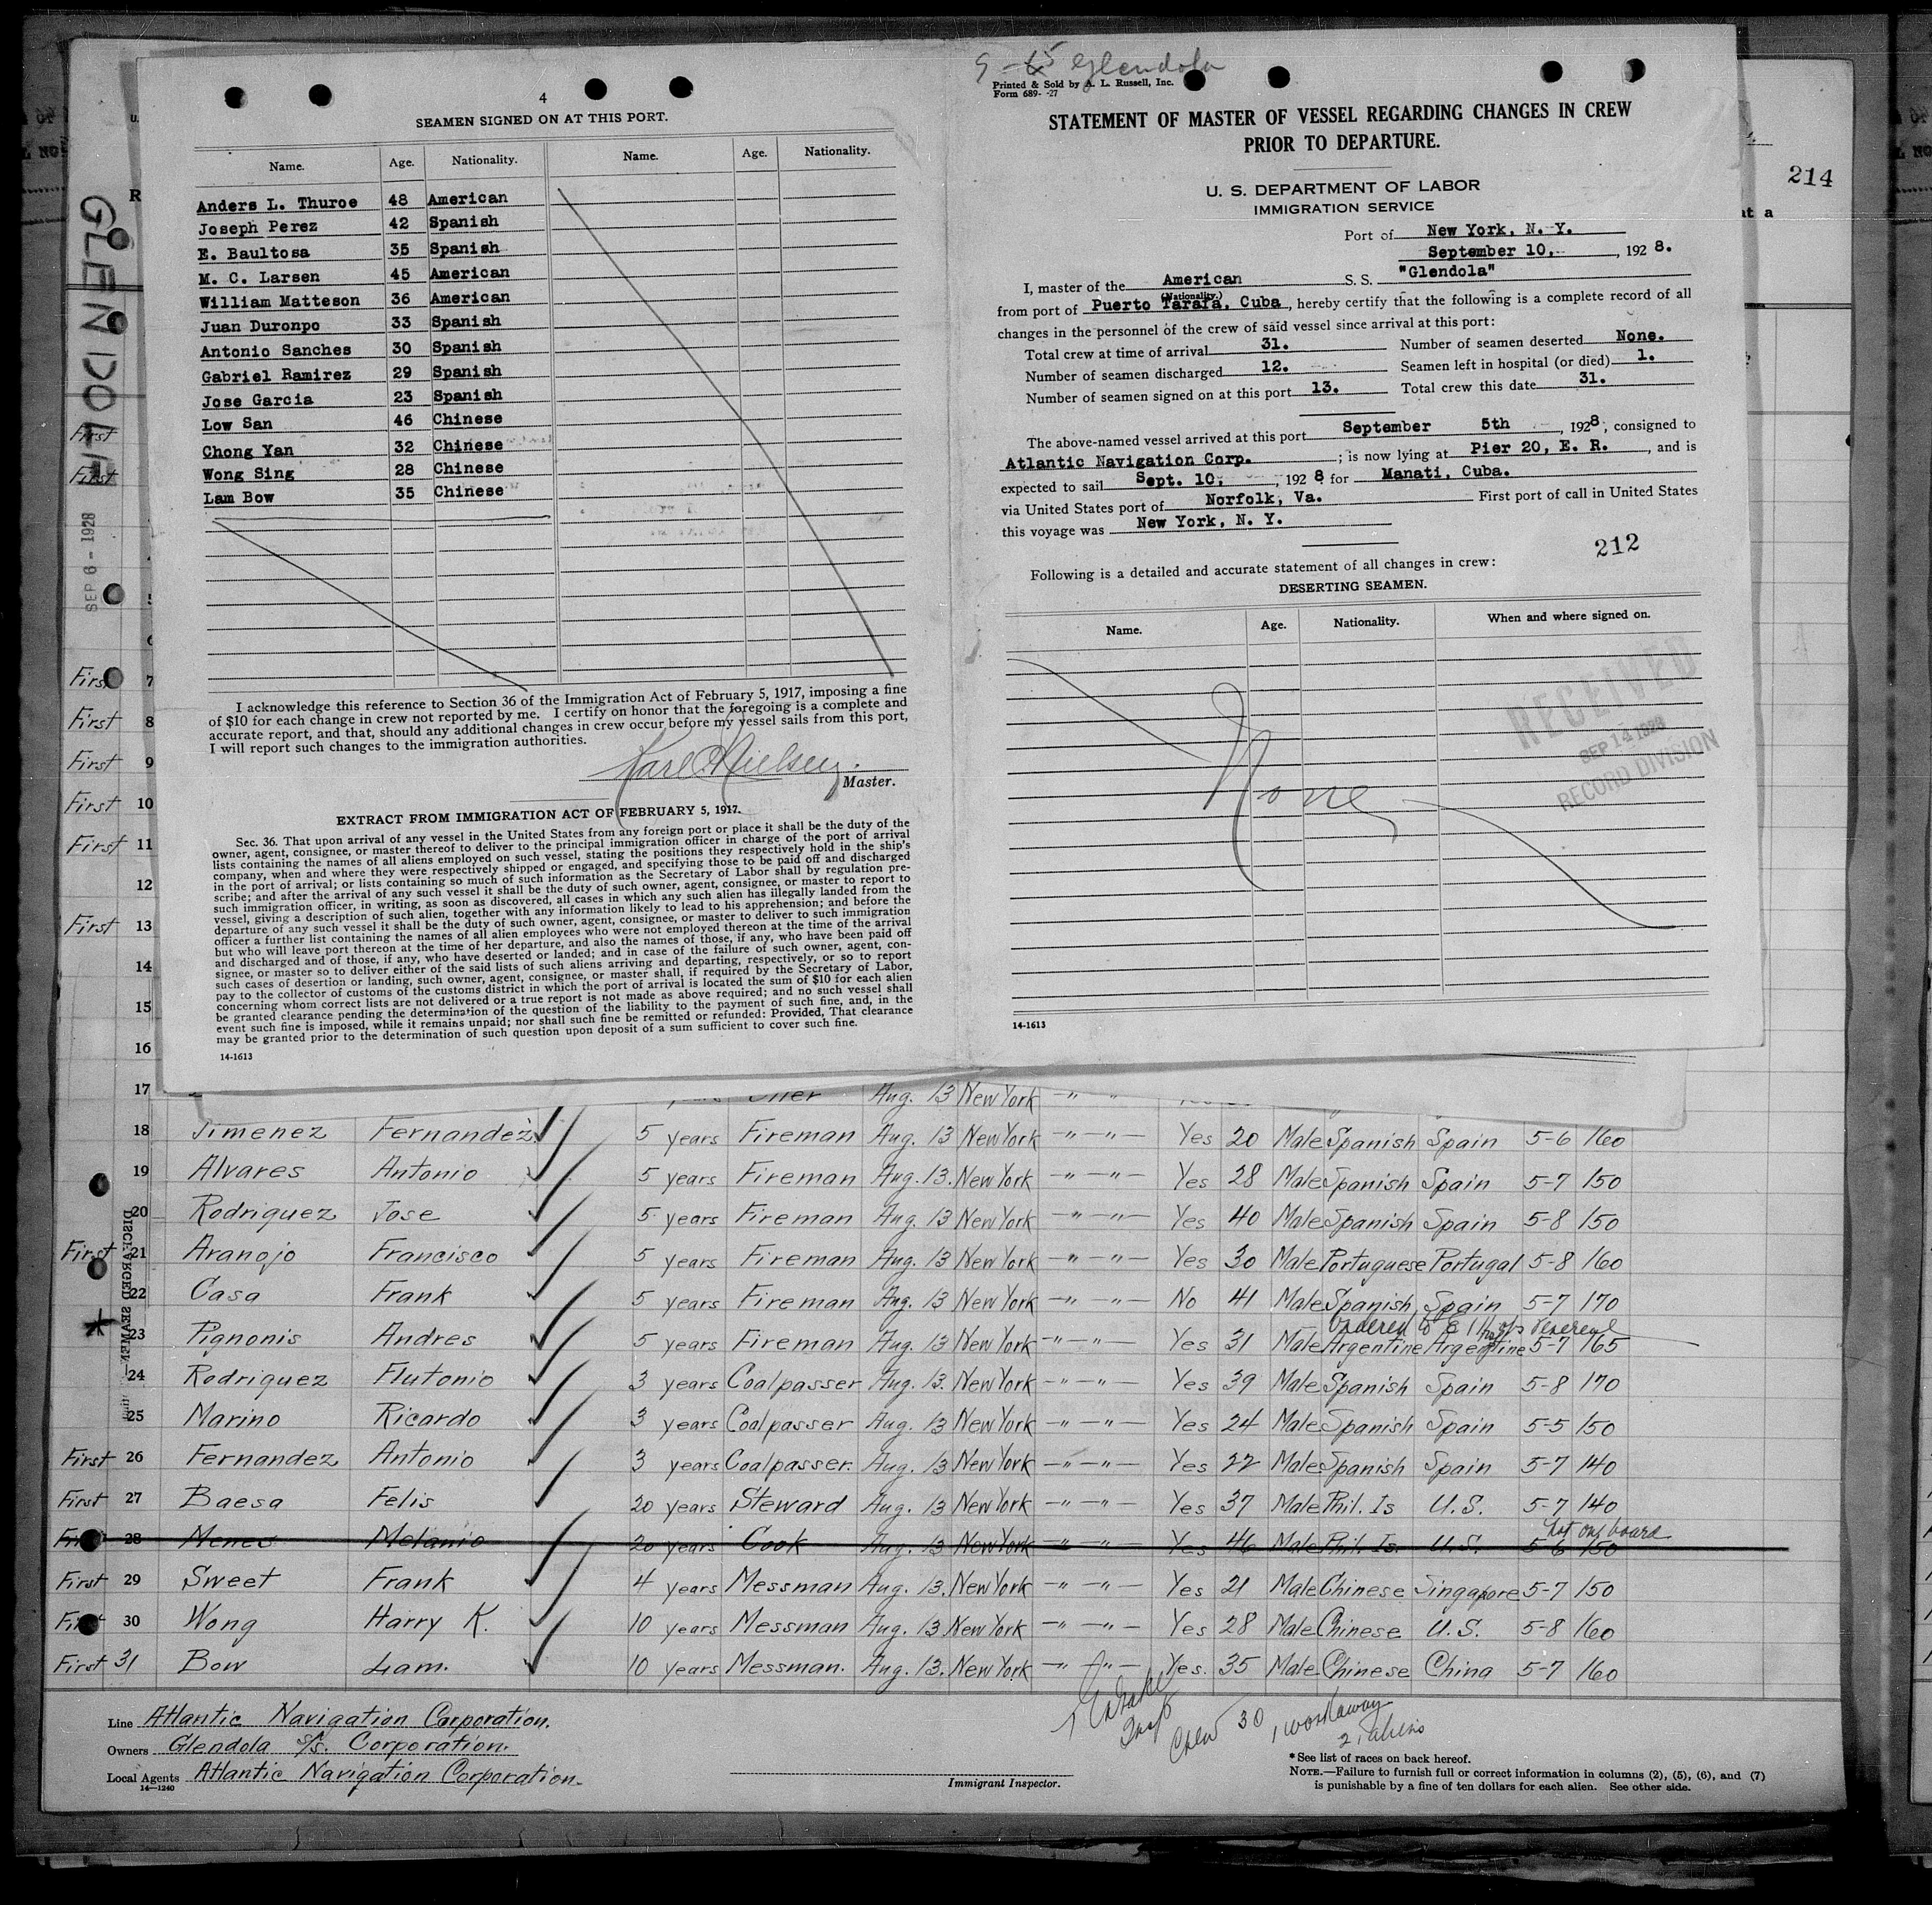 GLENDOLA
SEP 6 - 1928
214
4
SEAMEN SIGNED ON AT THIS PORT.
Name. Age. Nationality. Name. Age. Nationality.
Anders L. Thuroe 48 American
Joseph Perez 42 Spanish
E. Baultosa 35 Spanish
M. C. Larsen 45 American
William Matteson 36 American
Juan Duronpo 33 Spanish
Antonio Sanches 30 Spanish
Gabriel Ramirez 29 Spanish
Jose Garcia 23 Spanish
Low San 46 Chinese
Chong Yan 32 Chinese
Wong Sing 28 Chinese
Lam Bow 35 Chinese
I acknowledge this reference to Section 36 of the Immigration Act of February 5, 1917, imposing a fine
of $10 for each change in crew not reported by me. I certify on honor that the foregoing is a complete and
accurate report, and that, should any additional changes in crew occur before my vessel sails from this port,
I will report such changes to the immigration authorities.
Karl Nielsen
Master.
EXTRACT FROM IMMIGRATION ACT OF FEBRUARY 5, 1917.
Sec. 36. That upon arrival of any vessel in the United States from any foreign port or place it shall be the duty of the
owner, agent, consignee, or master thereof to deliver to the principal immigration officer in charge of the port of arrival
lists containing the names of all aliens employed on such vessel, stating the positions they respectively hold in the ship's
company, when and where they were respectively shipped or engaged, and specifying those to be paid off and discharged
in the port of arrival; or lists containing so much of such information as the Secretary of Labor shall by regulation pre-
scribe; and after the arrival of any such vessel it shall be the duty of such owner, agent, consignee, or master to report to
such immigration officer, in writing, as soon as discovered, all cases in which any such alien has illegally landed from the
vessel, giving a description of such alien, together with any information likely to lead to his apprehension; and before the
departure of any such vessel it shall be the duty of such owner, agent, consignee, or master to deliver to such immigration
officer a further list containing the names of all alien employees who were not employed thereon at the time of the arrival
but who will leave port thereon at the time of her departure, and also the names of those, if any, who have been paid off
and discharged and of those, if any, who have deserted or landed; and in case of the failure of such owner, agent, con-
signee, or master so to deliver either of the said lists of such aliens arriving and departing, respectively, or so to report
such cases of desertion or landing, such owner, agent, consignee, or master shall, if required by the Secretary of Labor,
pay to the collector of customs of the customs district in which the port of arrival is located the sum of $10 for each alien
concerning whom correct lists are not delivered or a true report is not made as above required; and no such vessel shall
be granted clearance pending the determination of the question of the liability to the payment of such fine, and, in the
event such fine is imposed, while it remains unpaid; nor shall such fine be remitted or refunded: Provided, That clearance
may be granted prior to the determination of such question upon deposit of a sum sufficient to cover such fine.
14-1613
Glendola
Printed & Sold by A. L. Russell, Inc.
Form 689- -27
STATEMENT OF MASTER OF VESSEL REGARDING CHANGES IN CREW
PRIOR TO DEPARTURE.
U. S. DEPARTMENT OF LABOR
IMMIGRATION SERVICE
Port of New York, N. Y.
September 10, , 1928.
I, master of the American S. S. "Glendola"
(Nationality.)
from port of Puerto Tarafa, Cuba, hereby certify that the following is a complete record of all
changes in the personnel of the crew of said vessel since arrival at this port:
Total crew at time of arrival 31. Number of seamen deserted None.
Number of seamen discharged 12. Seamen left in hospital (or died) 1.
Number of seamen signed on at this port 13. Total crew this date 31.
The above-named vessel arrived at this port September 5th , 1928, consigned to
Atlantic Navigation Corp. ; is now lying at Pier 20, E. R. , and is
expected to sail Sept. 10, , 1928 for Manati, Cuba.
via United States port of Norfolk, Va. First port of call in United States
this voyage was New York, N. Y.
212
Following is a detailed and accurate statement of all changes in crew:
DESERTING SEAMEN.
Name. Age. Nationality. When and where signed on.
None
RECEIVED
SEP 14 1928
RECORD DIVISION
14-1613
First
First
First 7
First 8
First 9
First 10
First 11
12
First 13
14
15
16
17 Oiler Aug. 13 New York -"-"-
18 Jimenez Fernandez 5 years Fireman Aug. 13 New York -"-"- Yes 20 Male Spanish Spain 5-6 160
19 Alvares Antonio 5 years Fireman Aug. 13. New York -"-"- Yes 28 Male Spanish Spain 5-7 150
20 Rodriquez Jose 5 years Fireman Aug. 13 New York -"-"- Yes 40 Male Spanish Spain 5-8 150
First 21 Aranojo Francisco 5 years Fireman Aug. 13 New York -"-"- Yes 30 Male Portuguese Portugal 5-8 160
22 Casa Frank 5 years Fireman Aug. 13 New York -"-"- No 41 Male Spanish Spain 5-7 170
* 23 Pignonis Andres 5 years Fireman Aug. 13 New York -"-"- Yes 31 Male Argentine Argentine 5-7 165
24 Rodriquez Flutonio 3 years Coalpasser Aug. 13. New York -"-"- Yes 39 Male Spanish Spain 5-8 170
25 Marino Ricardo 3 years Coalpasser Aug. 13 New York -"-"- Yes 24 Male Spanish Spain 5-5 150
First 26 Fernandez Antonio 3 years Coalpasser. Aug. 13 New York -"-"- Yes 22 Male Spanish Spain 5-7 140
First 27 Baesa Felis 20 years Steward Aug. 13 New York -"-"- Yes 37 Male Phil. Is U.S. 5-7 140
not on board
First 28 Menes Melanio 20 years Cook Aug. 13 New York -"-"- Yes 46 Male Phil. Is. U.S. 5-6 150
First 29 Sweet Frank 4 years Messman Aug. 13. New York -"-"- Yes 21 Male Chinese Singapore 5-7 150
First 30 Wong Harry K. 10 years Messman Aug. 13 New York -"-"- Yes 28 Male Chinese U.S. 5-8 160
First 31 Bow Lam. 10 years Messman. Aug. 13. New York -"-"- Yes. 35 Male Chinese China 5-7 160
DISCHARGED SEAMEN
Line Atlantic Navigation Corporation.
Owners Glendola S/S. Corporation.
Local Agents Atlantic Navigation Corporation.
14-1240
Crew 30 1 workaway
Immigrant Inspector.
*See list of races on back hereof.
NOTE.—Failure to furnish full or correct information in columns (2), (5), (6), and (7)
is punishable by a fine of ten dollars for each alien. See other side.